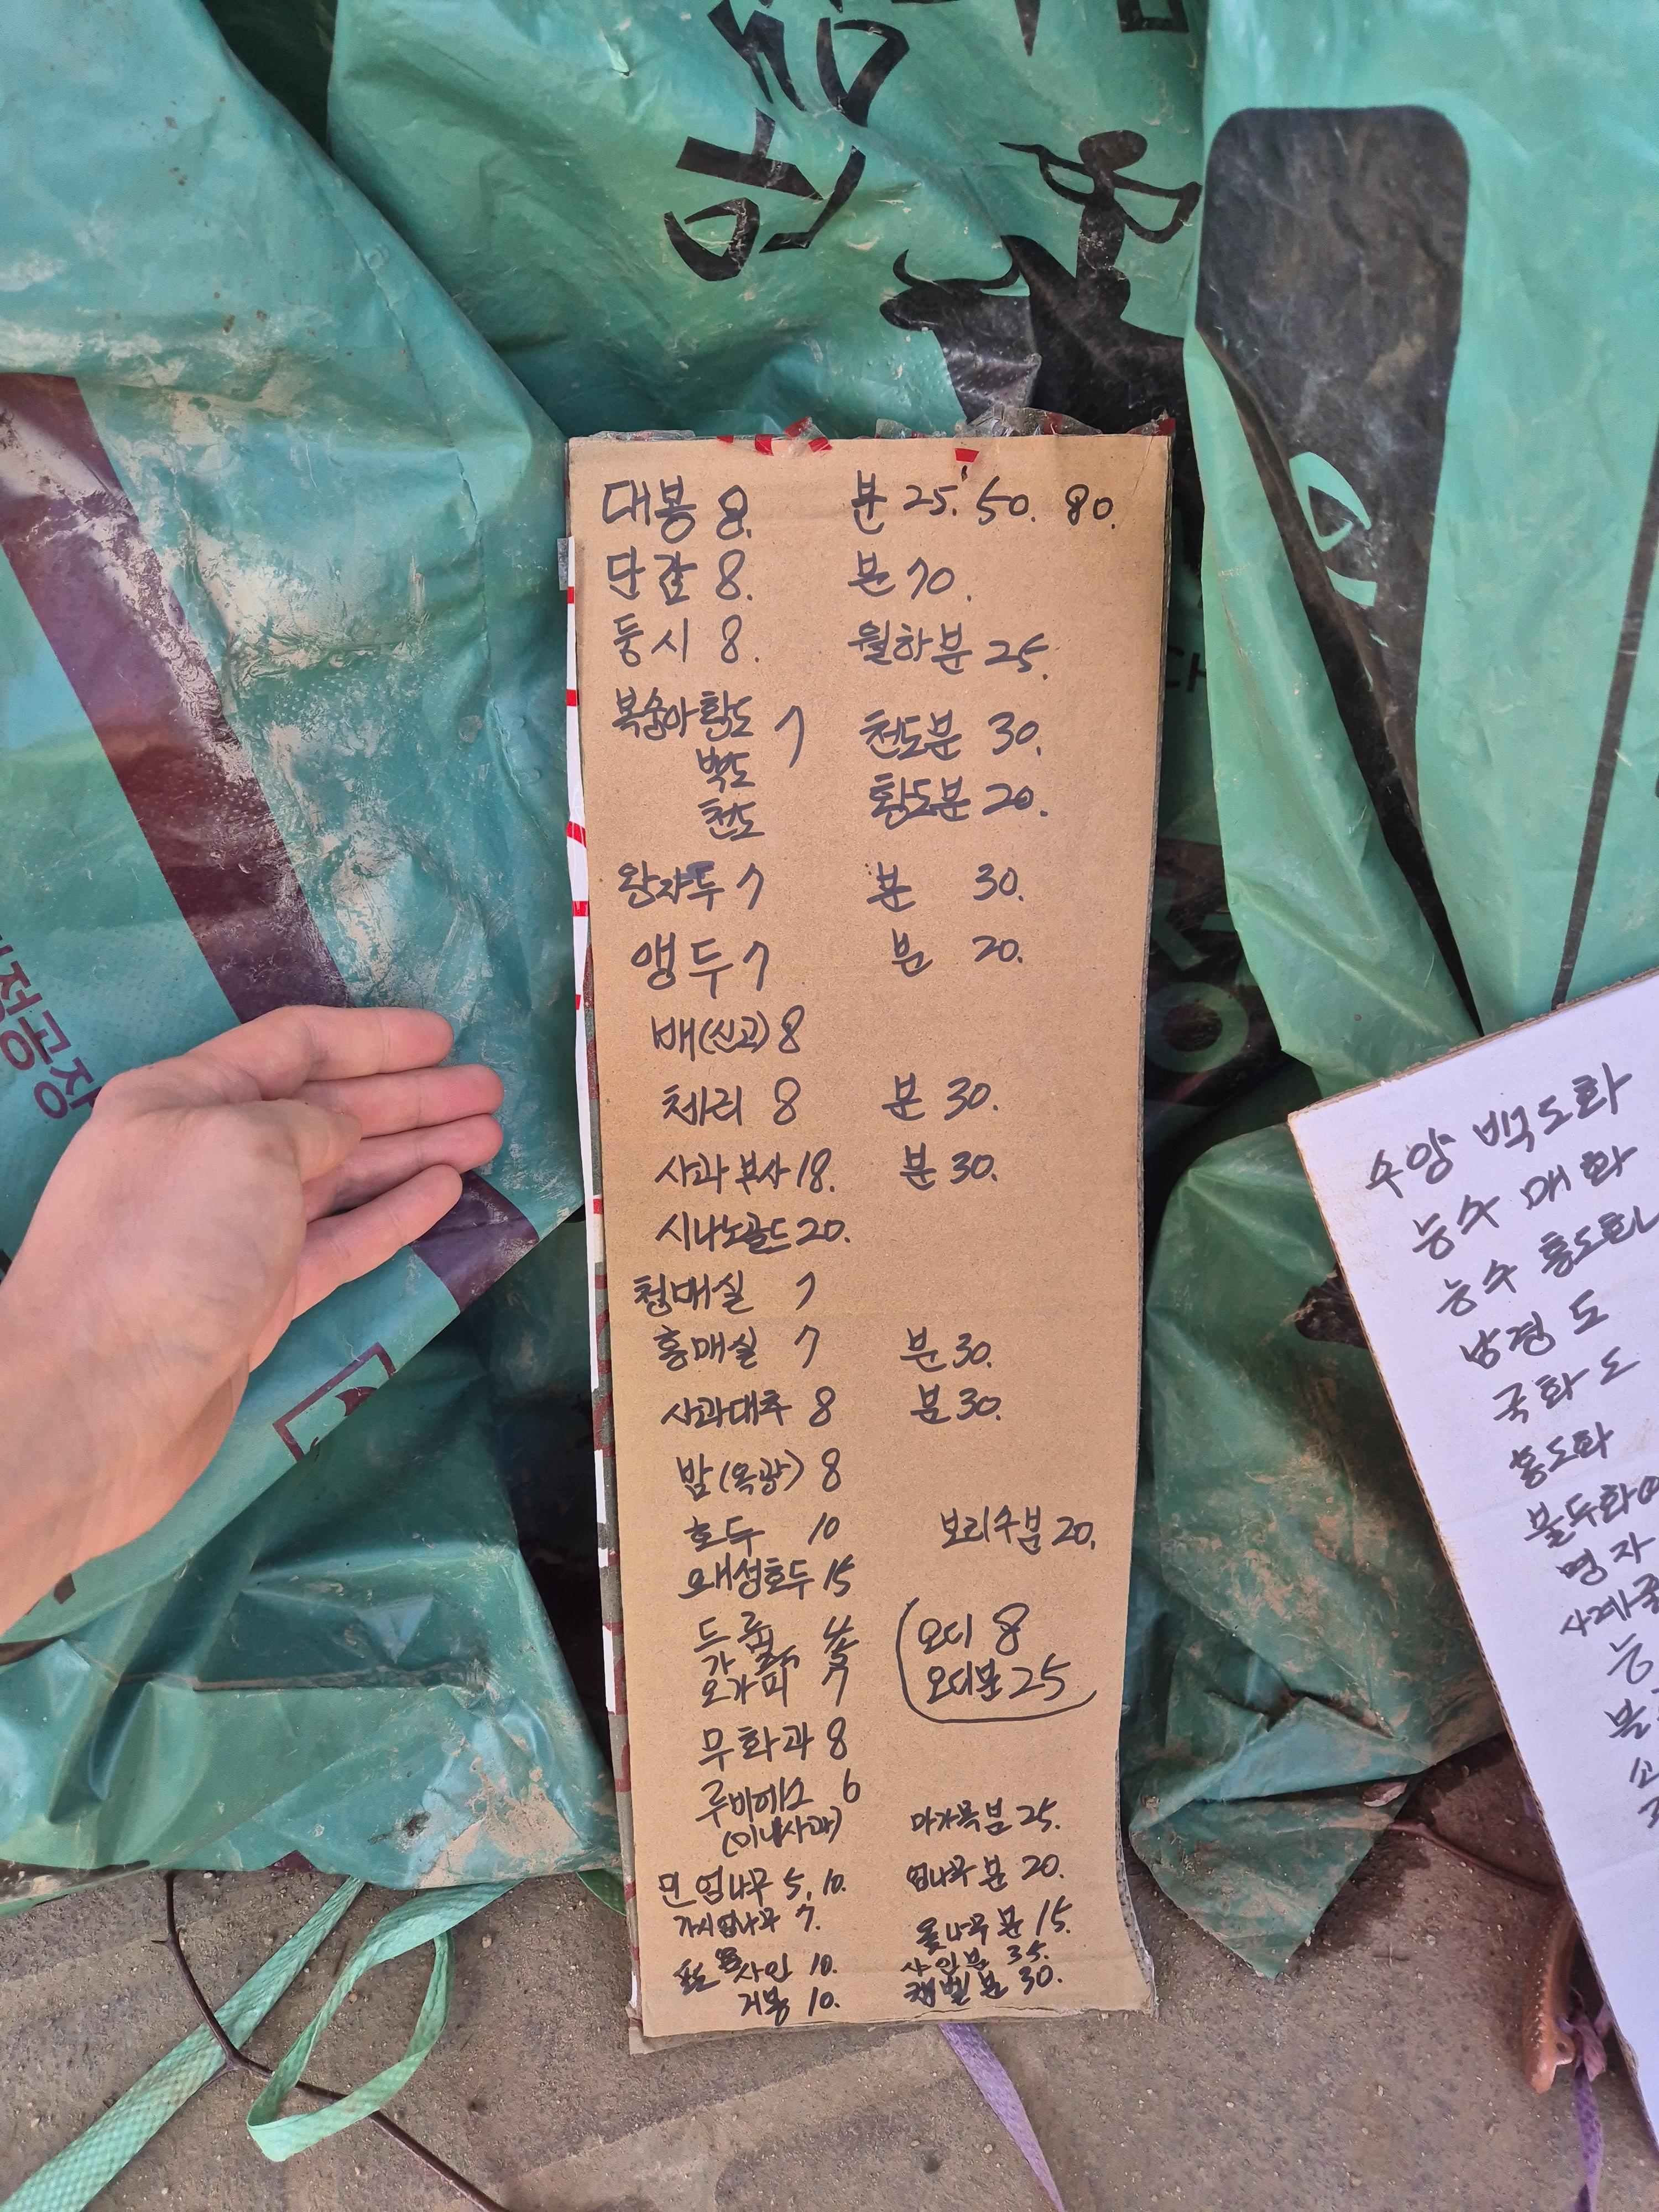 대봉 8. 분 25. 50. 80.
단감 8. 분 70.
둥시 8. 월하분 25.
복숭아 황도 7 천도분 30.
백도
천도 황도분 20.
왕자두 7 분 30.
앵두 7 분 20.
배(신고) 8
체리 8 분 30.
사과 부사 18. 분 30.
시나노골드 20.
청매실 7
홍매실 7 분 30.
사과대추 8 분 30.
밤(옥광) 8
호두 10 보리수분 20.
왜성호두 15
드릅 오디 8
오가피 7 오디분 25
무화과 8
루비에스 6
(미니사과) 마가목분 25.
민엄나무 5, 10. 엄나무분 20.
가시엄나무 7.
옻나무분 15.
사인 10. 사인분 35.
거봉 10. 캠벨분 30.
수양 백도화
능수 매화
능수 홍도화
남경도
국화도
홍도화
불두화
명자
사계
능
불
정공장